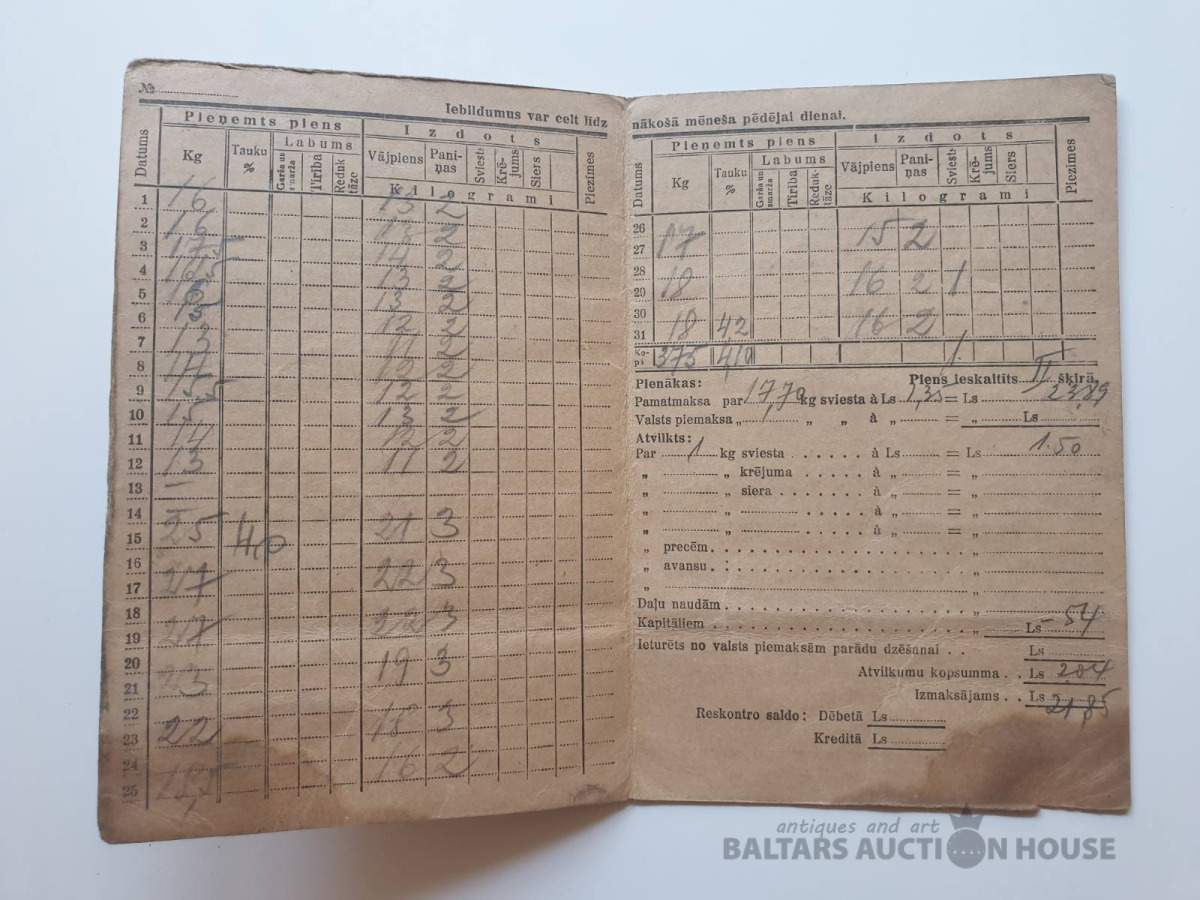 №
Iebildumus var celt līdz
Datums Pieņemts piens Izdots Piezīmes
Kg Tauku % Labums Vājpiens Paniņas Sviests Krējums Siers
Garša un smarža Tīrība Reduktāze
Kilogrami
1 16 13 2
2 16 13 2
3 17,5 14 2
4 16,5 13 2
5 13 2
6 12 2
7 13 11 2
8 14 12 2
9 15,5 12 2
10 15 13 2
11 14 12 2
12 13 11 2
13 –
14
15 25 4,0 21 3
16
17 27 22 3
18
19 27 22 3
20
21 23 19 3
22
23 22 18 3
24
25 16 2
nākošā mēneša pēdējai dienai.
Datums Pieņemts piens Izdots Piezīmes
Kg Tauku % Labums Vājpiens Paniņas Sviests Krējums Siers
Garša un smarža Tīrība Reduktāze
Kilogrami
26
27 17 15 2
28
29 18 16 2 1
30
31 18 4,2 16 2
Kopā 375 4,10 1
Pienākas: Piens ieskaitīts II šķirā.
Pamatmaksa par 17,70 kg sviesta à Ls 1,35 = Ls 23,89
Valsts piemaksa „ „ „ à „ = „ Ls
Atvilkts:
Par 1 kg sviesta à Ls = Ls 1.50
„ „ krējuma à „ = „
„ „ siera à „ = „
„ „ à „ = „
„ „ à „ = „
„ precēm „
„ avansu „
„ „
Daļu naudām „
Kapitāliem „ Ls –54
Ieturēts no valsts piemaksām parādu dzēšanai Ls
Atvilkumu kopsumma Ls 2,04
Izmaksājams Ls 21,85
Reskontro saldo: Dēbetā Ls
Kreditā Ls
antiques and art
BALTARS AUCTION HOUSE